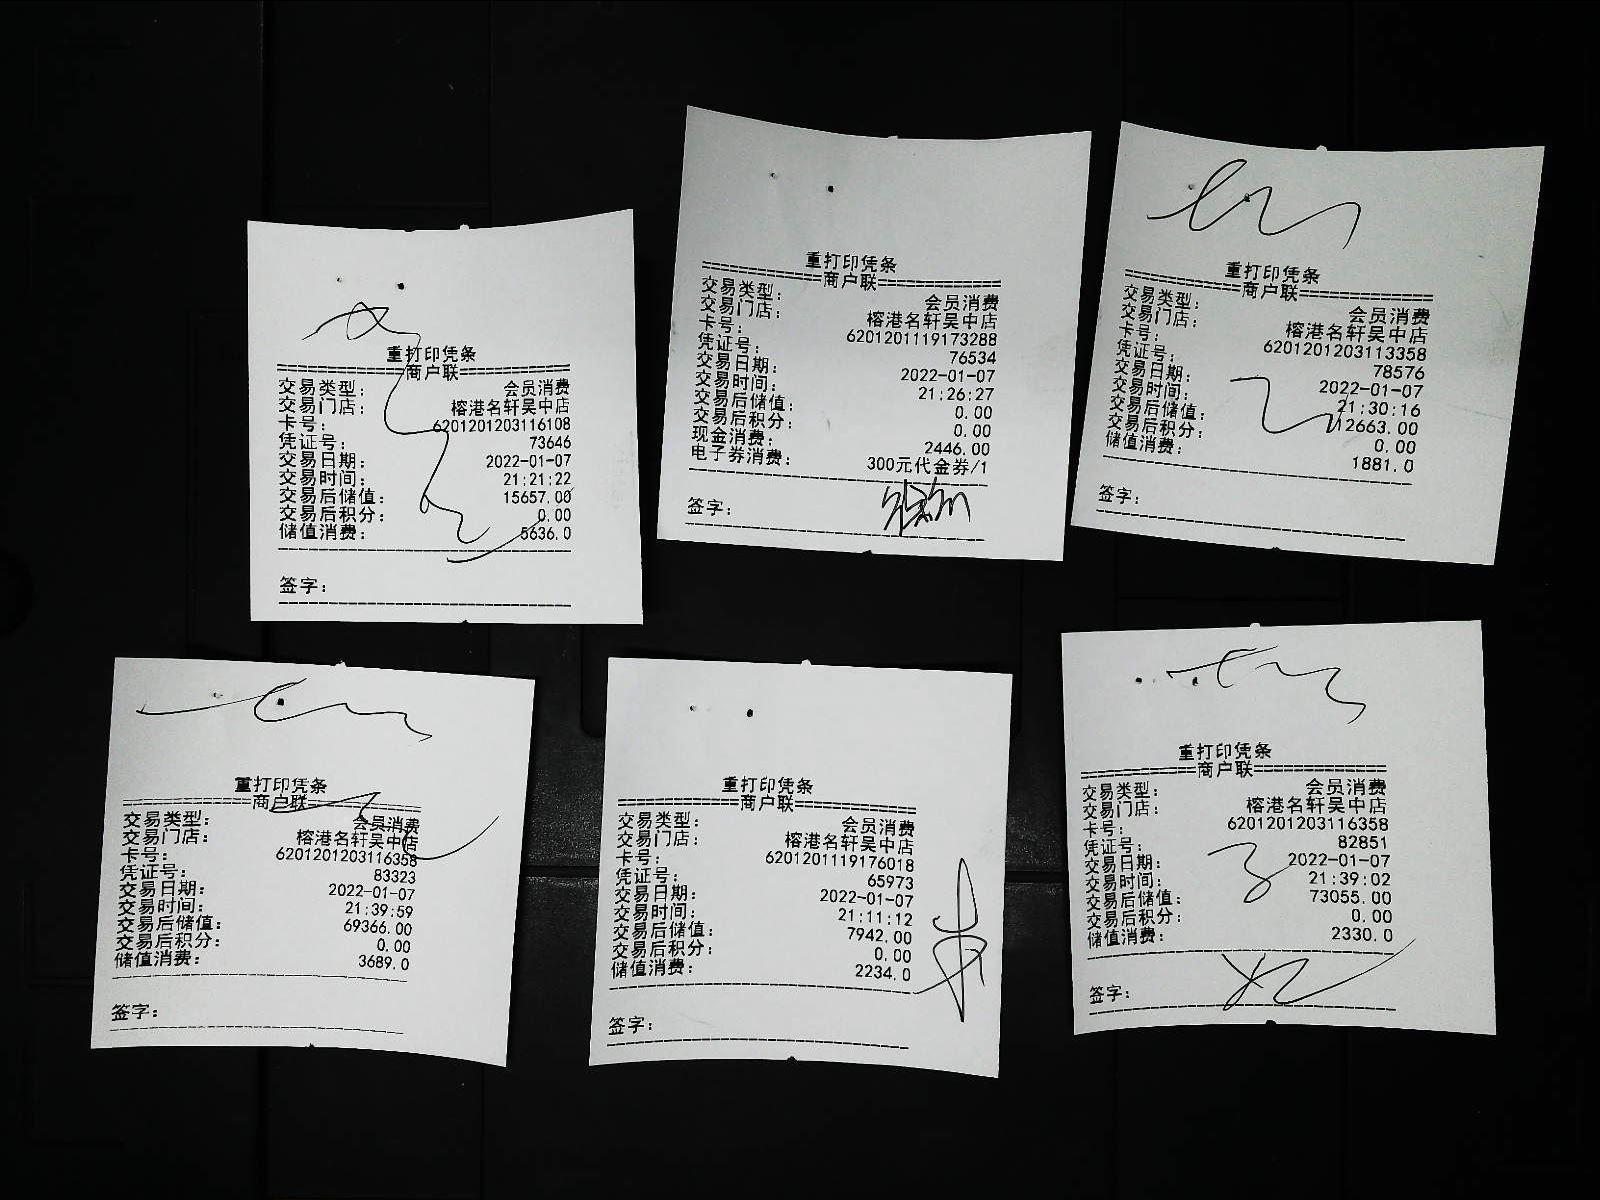 重打印凭条
==========商户联==========
交易类型： 会员消费
交易门店： 榕港名轩吴中店
卡号： 6201201203116108
凭证号： 73646
交易日期： 2022-01-07
交易时间： 21:21:22
交易后储值： 15657.00
交易后积分： 0.00
储值消费： 5636.0
签字：
重打印凭条
==========商户联==========
交易类型： 会员消费
交易门店： 榕港名轩吴中店
卡号： 6201201119173288
凭证号： 76534
交易日期： 2022-01-07
交易时间： 21:26:27
交易后储值： 0.00
交易后积分： 0.00
现金消费： 2446.00
电子券消费： 300元代金券/1
签字：
重打印凭条
==========商户联==========
交易类型： 会员消费
交易门店： 榕港名轩吴中店
卡号： 6201201203113358
凭证号： 78576
交易日期： 2022-01-07
交易时间： 21:30:16
交易后储值： 12663.00
交易后积分： 0.00
储值消费： 1881.0
签字：
重打印凭条
==========商户联==========
交易类型： 会员消费
交易门店： 榕港名轩吴中店
卡号： 6201201203116358
凭证号： 83323
交易日期： 2022-01-07
交易时间： 21:39:59
交易后储值： 69366.00
交易后积分： 0.00
储值消费： 3689.0
签字：
重打印凭条
==========商户联==========
交易类型： 会员消费
交易门店： 榕港名轩吴中店
卡号： 6201201119176018
凭证号： 65973
交易日期： 2022-01-07
交易时间： 21:11:12
交易后储值： 7942.00
交易后积分： 0.00
储值消费： 2234.0
签字：
重打印凭条
==========商户联==========
交易类型： 会员消费
交易门店： 榕港名轩吴中店
卡号： 6201201203116358
凭证号： 82851
交易日期： 2022-01-07
交易时间： 21:39:02
交易后储值： 73055.00
交易后积分： 0.00
储值消费： 2330.0
签字：